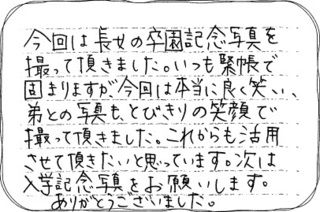 今回は長女の卒園記念写真を
撮って頂きました。いつも緊張で
固まりますが今回は本当に良く笑い、
弟との写真も、とびきりの笑顔で
撮って頂きました。これからも活用
させて頂きたいと思っています。次は
入学記念写真をお願いします。
ありがとうございました。